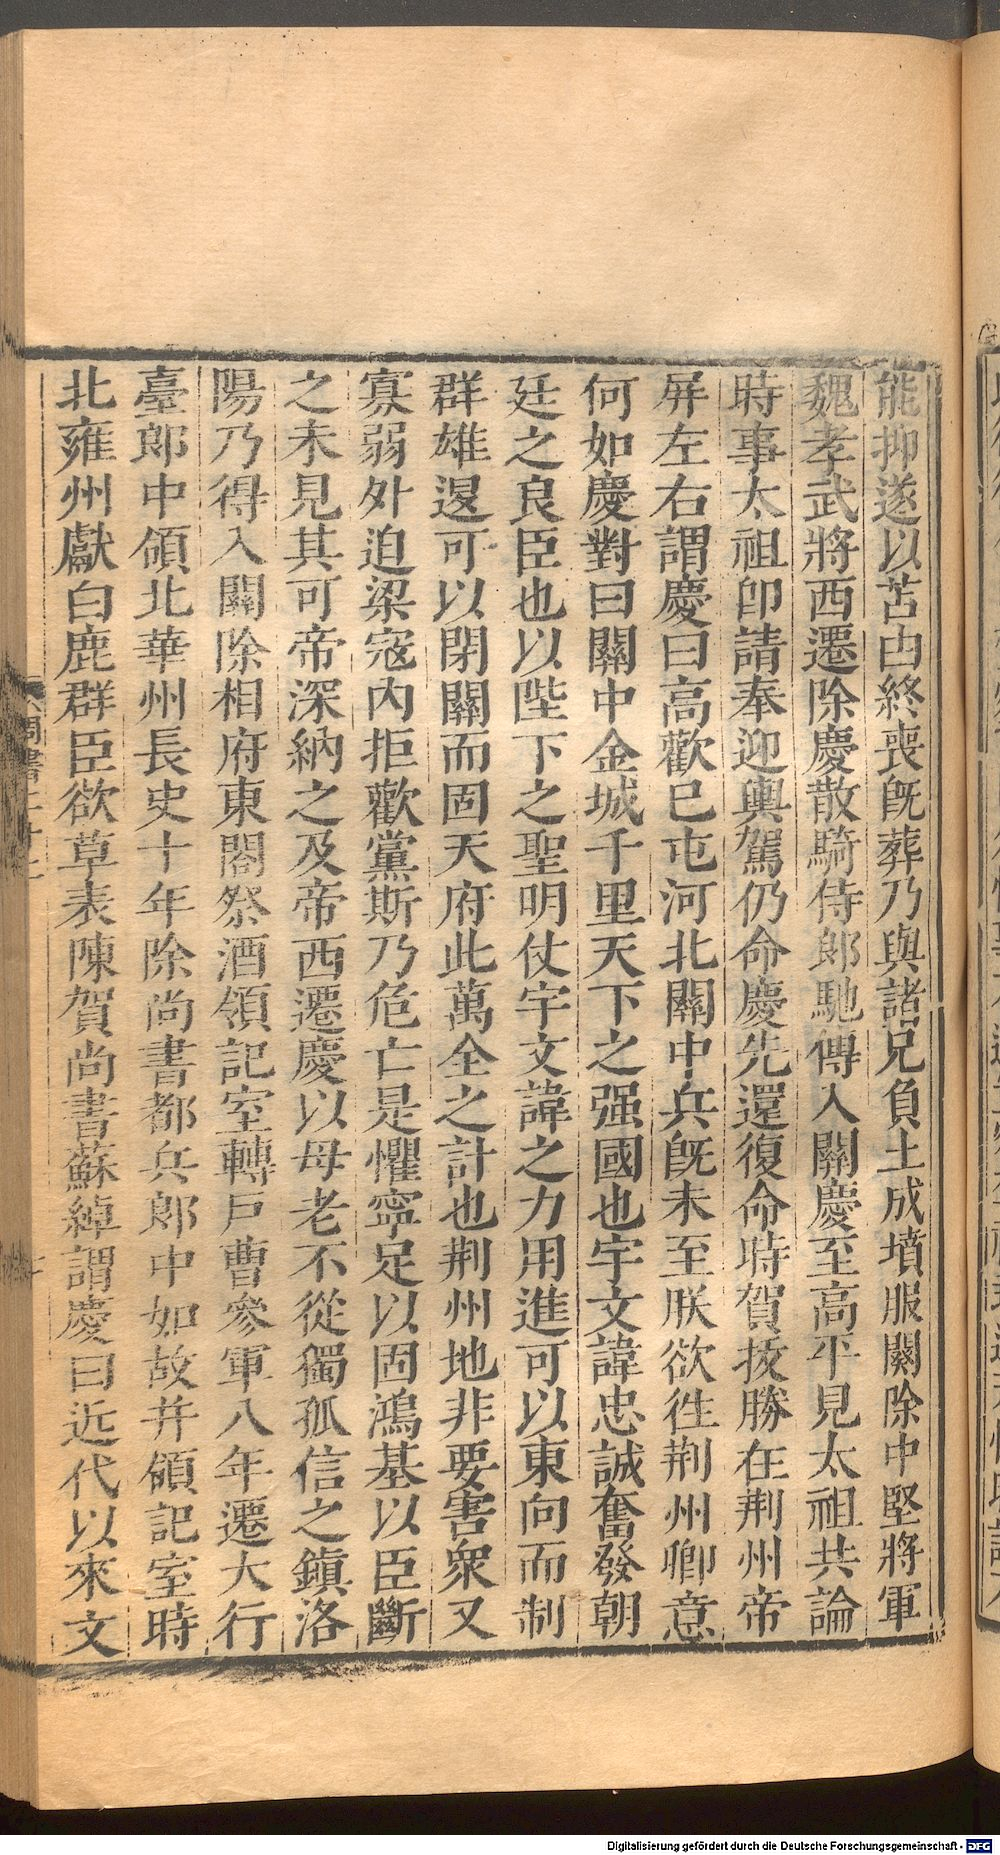 能抑遂以苫由終喪既葬乃與諸兄負土成墳服闋除中堅將軍
魏孝武將西遷除慶散騎侍郎馳傳入關慶至高平見太祖共論
時事太祖卽請奉迎輿駕仍命慶先還復命時賀拔勝在荆州帝
屏左右謂慶曰高歡已屯河北關中兵旣未至朕欲徃荆州卿意
何如慶對曰關中金城千里天下之强國也宇文諱忠誠奮發朝
廷之良臣也以陛下之聖明仗宇文諱之力用進可以東向而制
群雄退可以閉關而固天府此萬全之計也荆州地非要害衆又
寡弱外迫梁寇内拒歡黨斯乃危亡是懼寧足以固鴻基以臣斷
之未見其可帝深納之及帝西遷慶以母老不從獨孤信之鎮洛
陽乃得入關除相府東閤祭酒領記室轉戸曹參軍八年遷大行
臺郎中領北華州長史十年除尚書都兵郎中如故并領記室時
北雍州獻白鹿群臣欲草表陳賀尚書蘇綽謂慶曰近代以來文
周書二十二
Digitalisierung gefördert durch die Deutsche Forschungsgemeinschaft - DFG